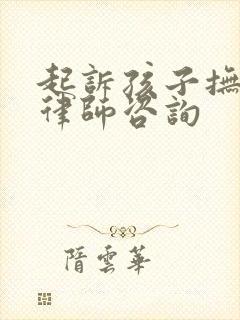 起訴孩子撫
律師咨詢
隋雲華